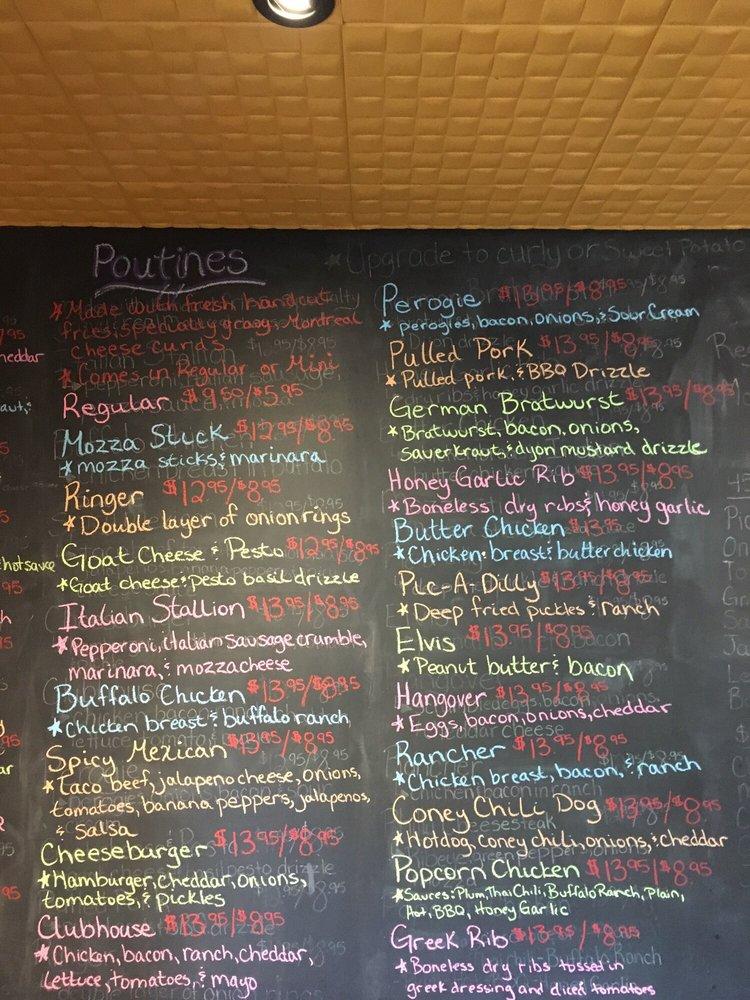 Poutines
*Made with fresh hand cut
fries, specialty gravy, Montreal
cheese curds
*Comes in Regular or Mini
Regular $9.50/$5.95
Mozza Stick $12.95/$8.95
*mozza sticks & marinara
Ringer $12.95/$8.95
*Double layer of onion rings
Goat Cheese & Pesto $12.95/$8.95
*Goat cheese & pesto basil drizzle
Italian Stallion $13.95/$8.95
*Pepperoni, italian sausage crumble,
marinara, & mozza cheese
Buffalo Chicken $13.95/$8.95
*Chicken breast & buffalo ranch
Spicy Mexican $13.95/$8.95
*Taco beef, jalapeno cheese, onions,
tomatoes, banana peppers, jalapenos,
& Salsa
Cheeseburger $13.95/$8.95
*Hamburger, cheddar, onions,
tomatoes, & pickles
Clubhouse $13.95/$8.95
*Chicken, bacon, ranch, cheddar,
lettuce, tomatoes, & mayo
*Upgrade to curly or Sweet Potato
Perogie $13.95/$8.95
*perogies, bacon, onions, & Sour Cream
Pulled Pork $13.95/$8.95
*Pulled pork, & BBQ Drizzle
German Bratwurst $13.95/$8.95
*Bratwurst, bacon, onions,
sauerkraut, & dyon mustard drizzle
Honey Garlic Rib $13.95/$8.95
*Boneless dry ribs & honey garlic
Butter Chicken $13.95
*Chicken breast & butter chicken
Pic-A-Dilly $13.95/$8.95
*Deep fried pickles & ranch
Elvis $13.95/$8.95
*Peanut butter & bacon
Hangover $13.95/$8.95
*Eggs, bacon, onions, cheddar
Rancher $13.95/$8.95
*Chicken breast, bacon, & ranch
Coney Chili Dog $13.95/$8.95
*Hotdog, Coney chili, onions, & cheddar
Popcorn Chicken $13.95/$8.95
*Sauces: Plum, Thai Chili, Buffalo Ranch, Plain,
Hot, BBQ, Honey Garlic
Greek Rib $13.95/$8.95
*Boneless dry ribs tossed in
greek dressing and diced tomatoes